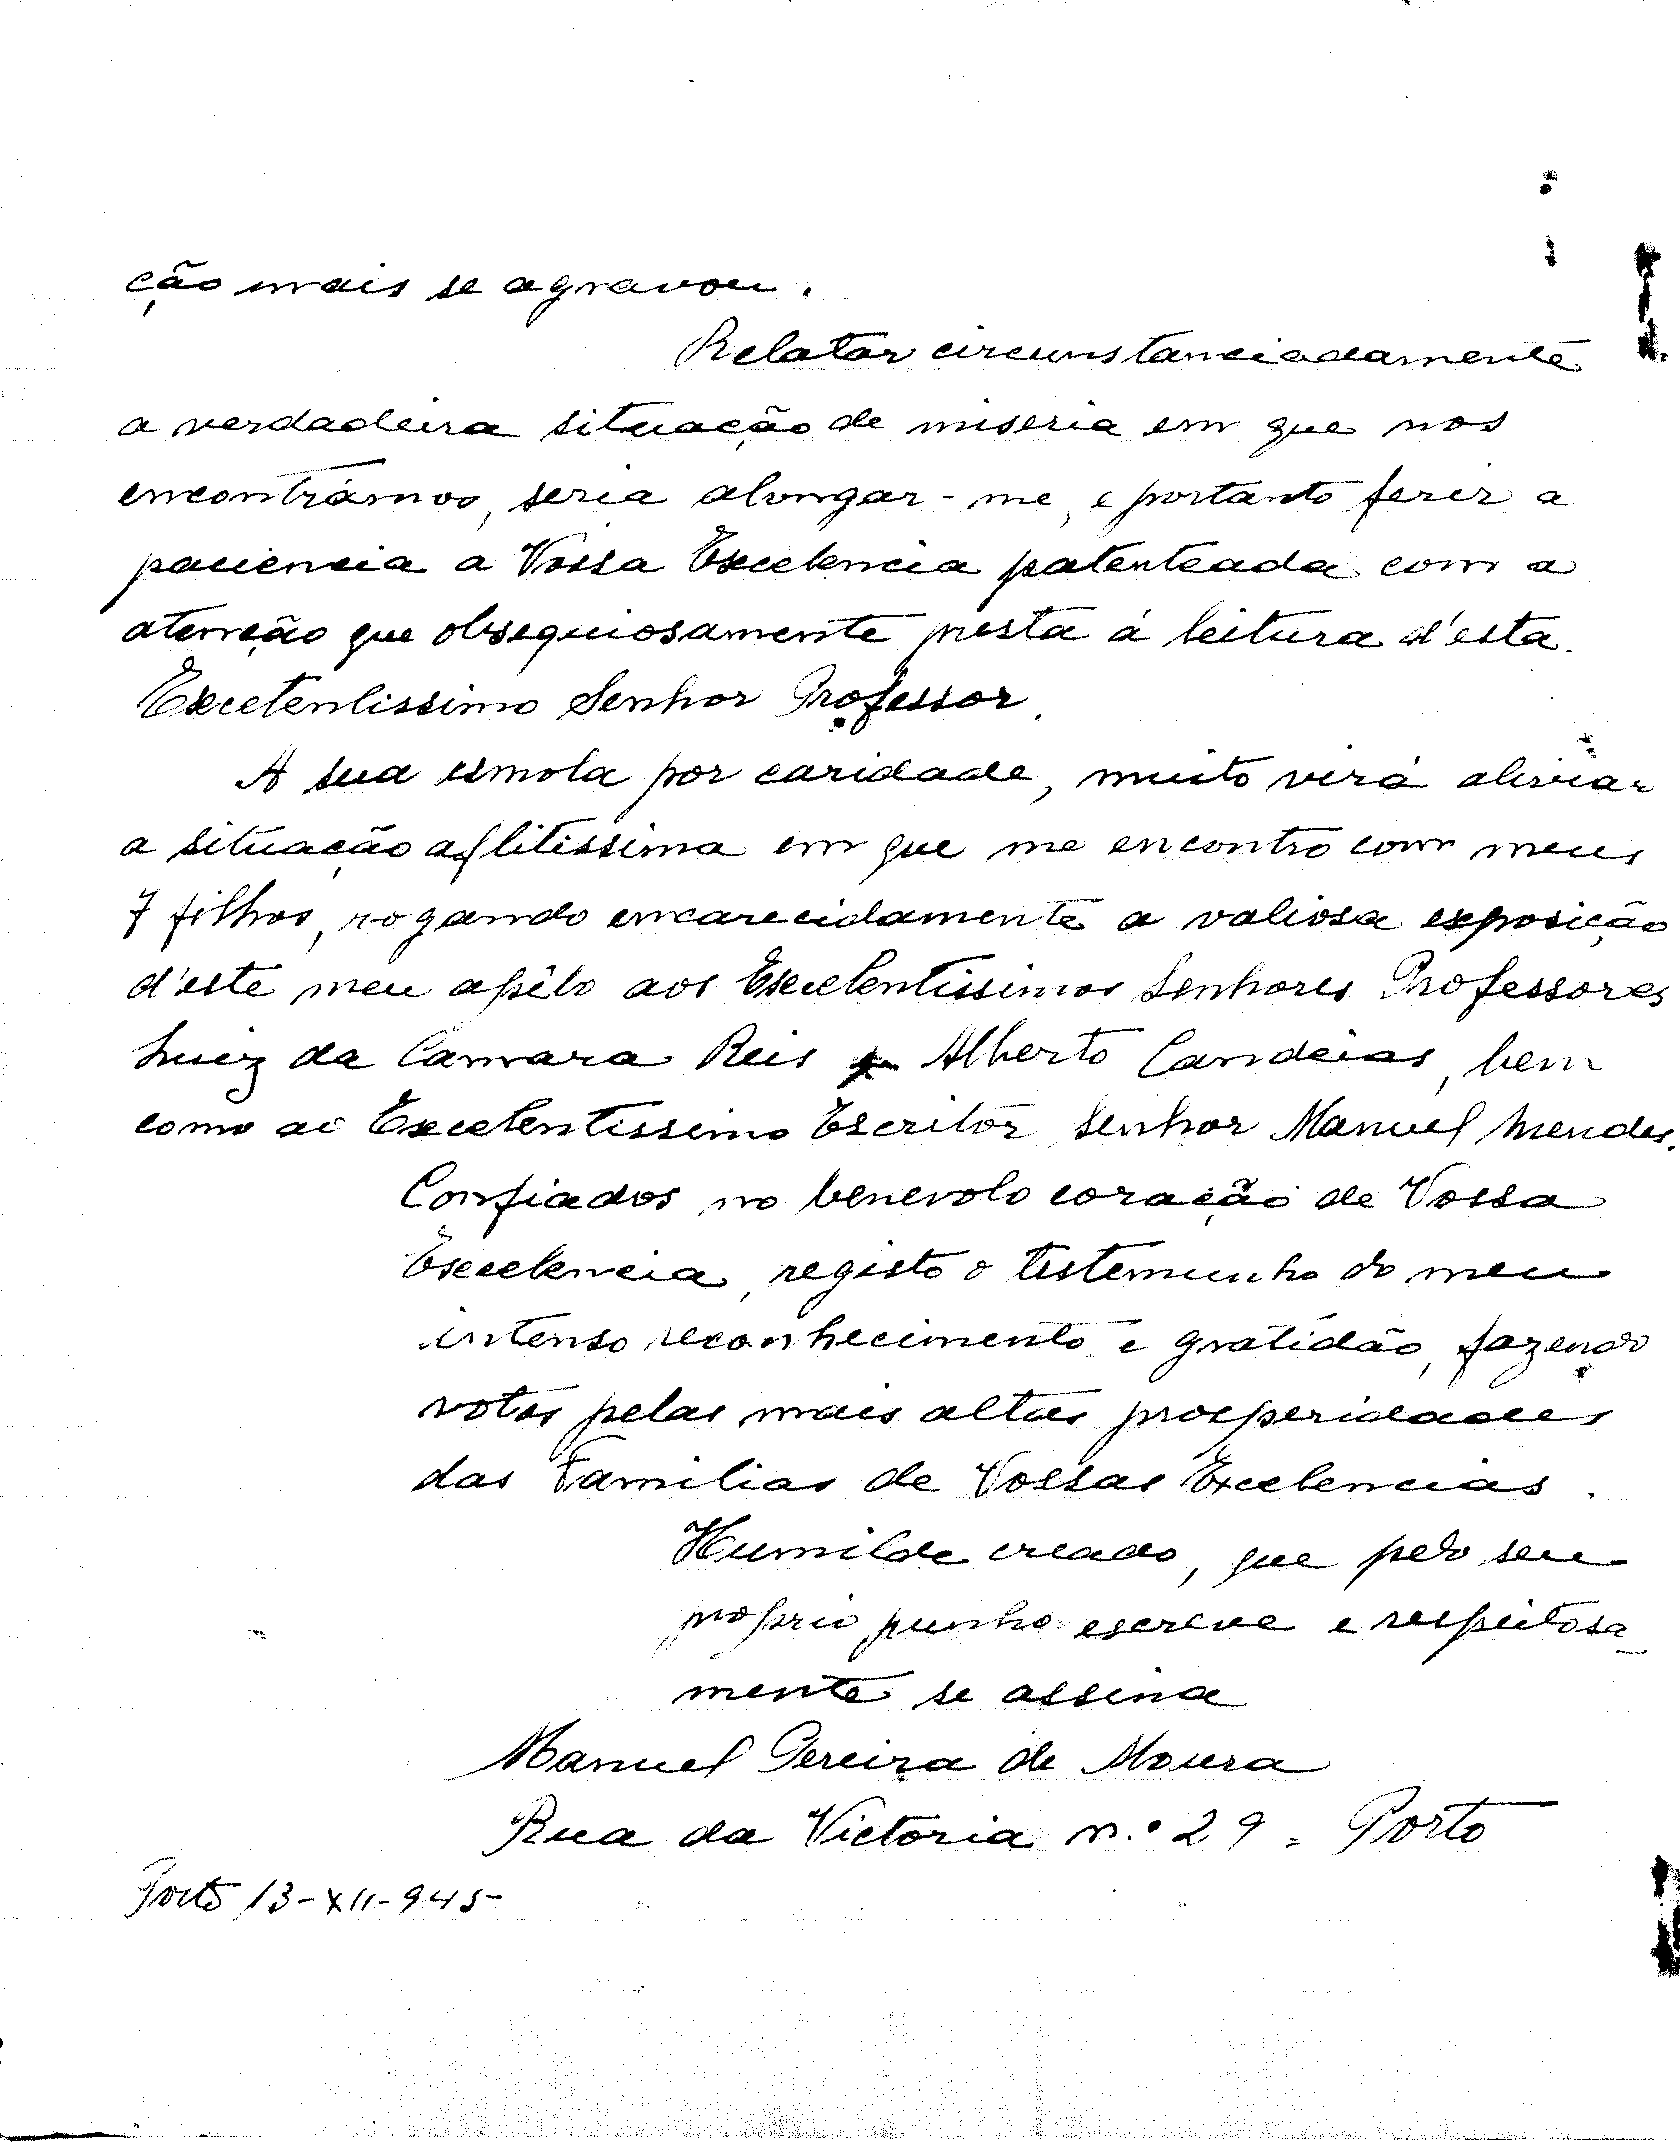 ção mais se agravou.
Relatar circunstanciadamente
a verdadeira situação de miseria em que nos
encontrâmos, seria alongar-me, e portanto ferir a
paciencia a Vossa Excelencia patenteada com a
atenção que obsequiosamente presta á leitura d'esta.
Excelentissimo Senhor Professor.
A sua esmola por caridade, muito virá aliviar
a situação aflitissima em que me encontro com meus
7 filhos, rogando encarecidamente a valiosa exposição
d'este meu apêlo aos Excelentissimos Senhores Professores
Luiz da Camara Reis e Alberto Candeias, bem
como ao Excelentissimo Escritor Senhor Manuel Mendes.
Confiados no benevolo coração de Vossa
Excelencia, registo o testemunho do meu
intenso reconhecimento e gratidão, fazendo
votos pelas mais altas prosperidades
das Familias de Vossas Excelencias.
Humilde creado, que pelo seu
proprio punho escreve e respeitosa-
mente se assina
Manuel Pereira de Moura
Rua da Victoria n.º 29 = Porto
Porto 13-XII-945-